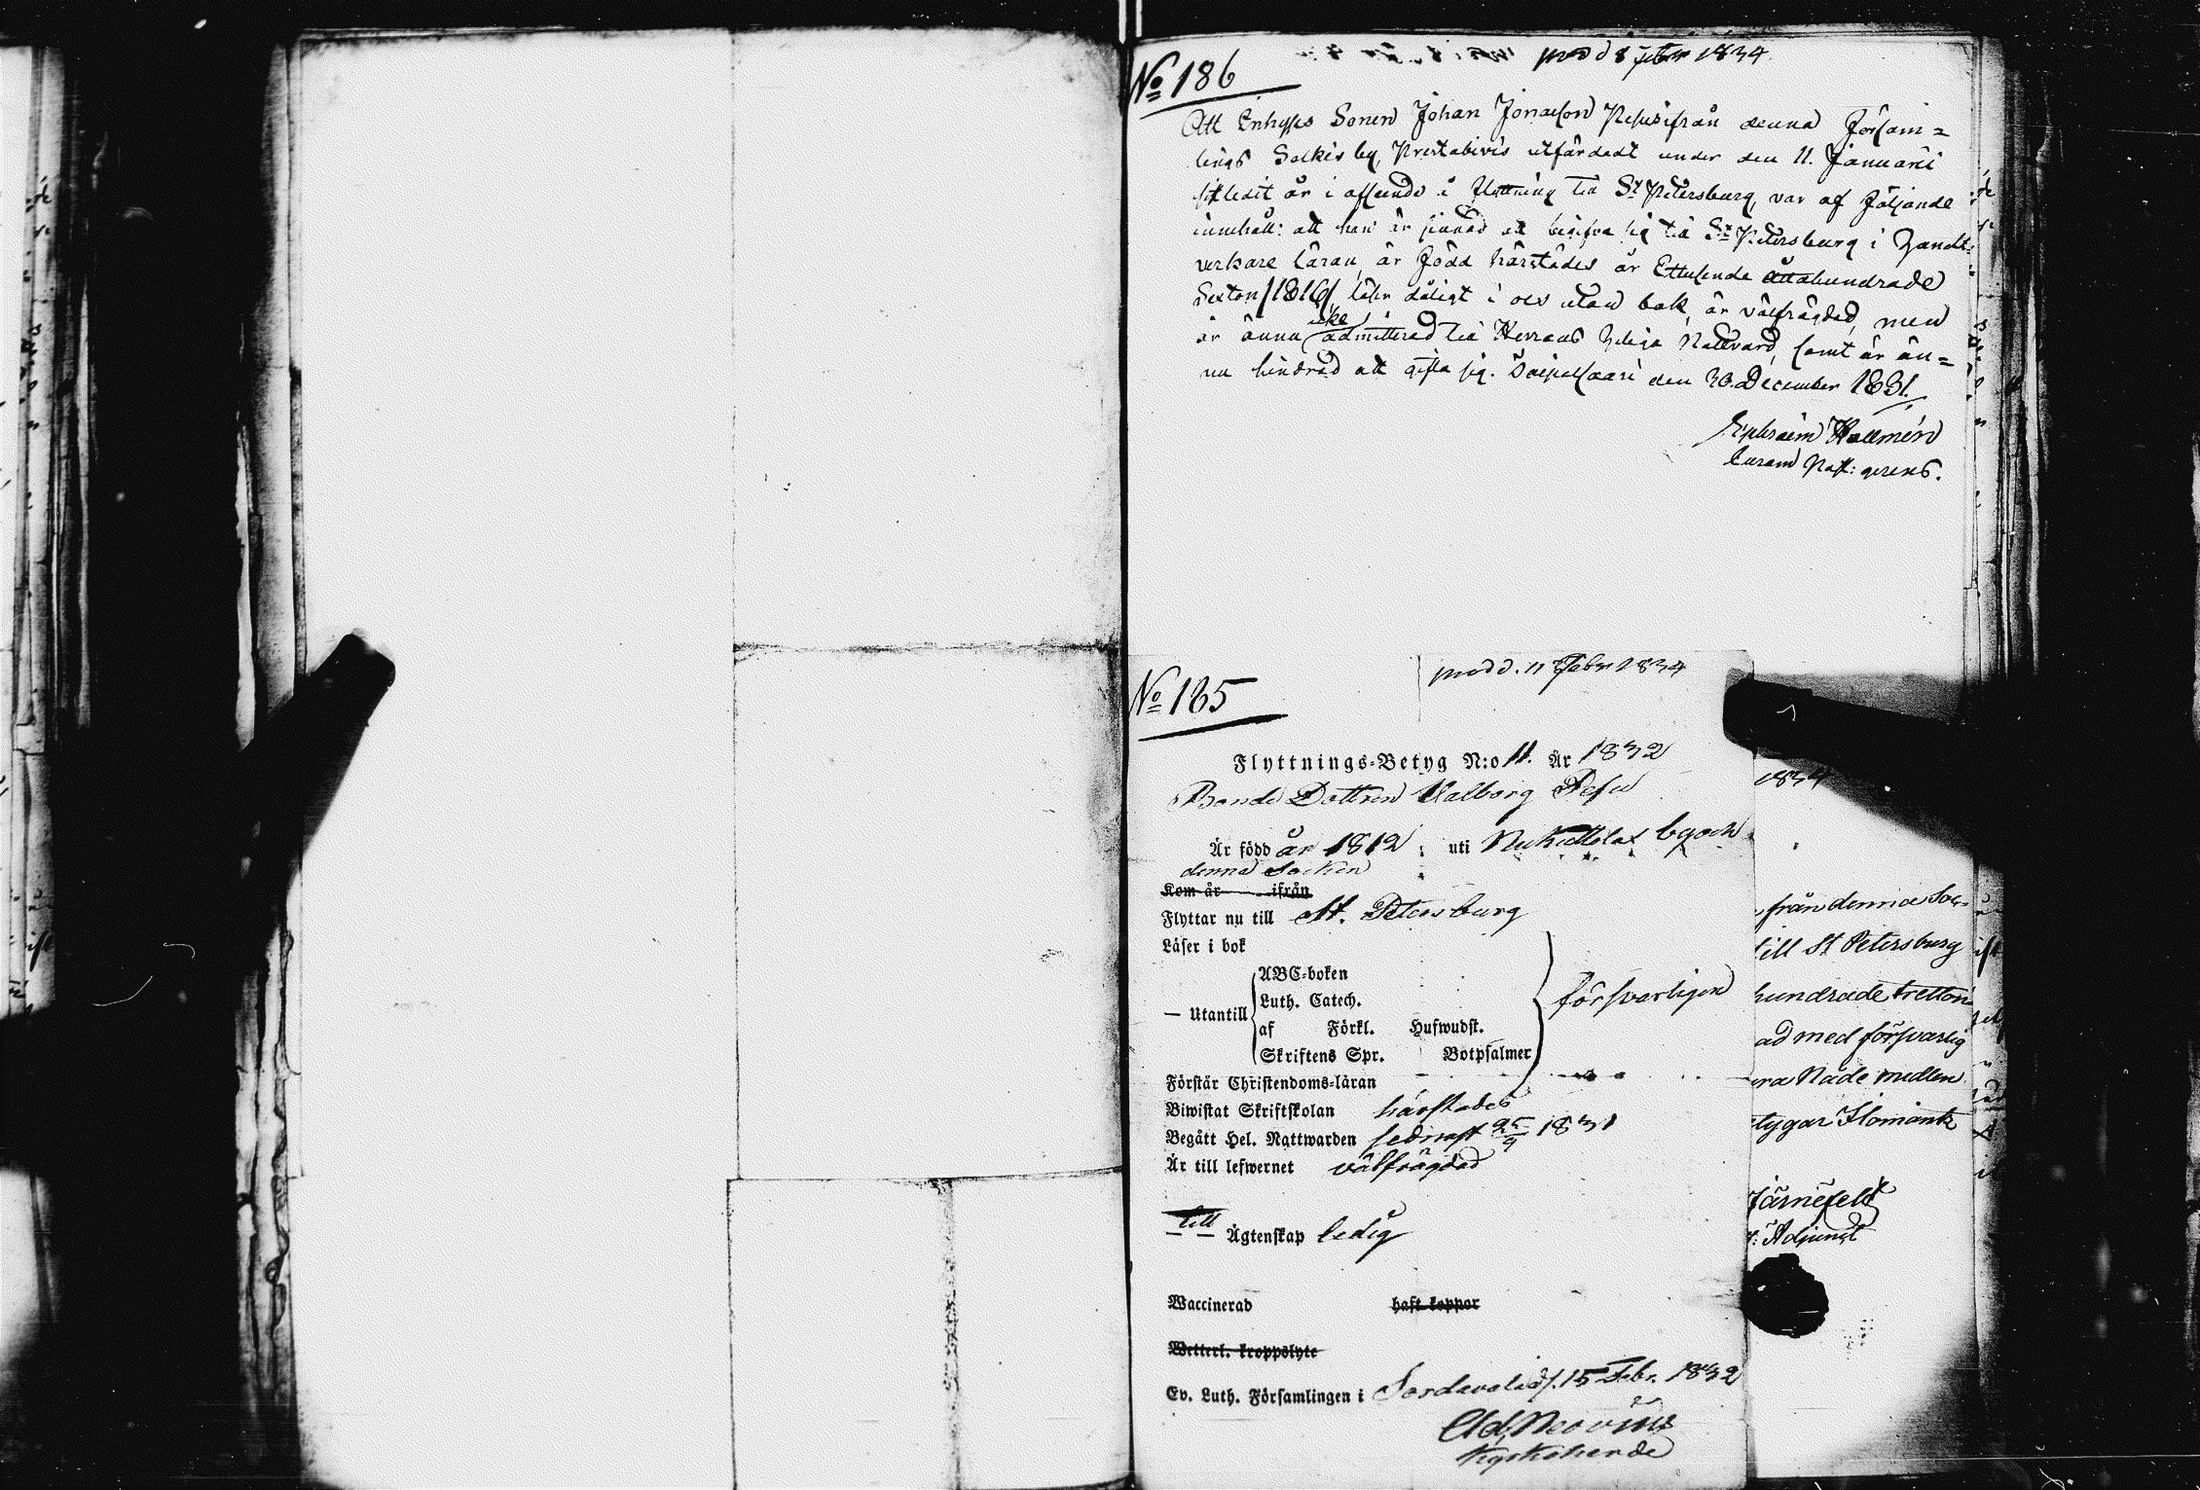 No 186
mod d 8 febr 1834
Att Inhyses Sonen Johan Jonasson ifrån denna Försam=
lings Salkis by, Prestabevis utfärdadt under den 11. Januari
år i afseende å flyttning till St Petersburg, var af följande
innehåll: att han är sinnad att begifva sig till St Petersburg i Handt=
verkare läran, är född härstädes år Ettusende åttahundrade
Sexton /1816/, läser dåligt i och utan bok, är välfrägdad, men
är ännu icke admitterad till Herrans heliga Nattvard, samt är än=
nu hindrad att gifta sig. den 30. December 1831.
Ephraim Hallmén
Past: gerens.
No 185
mod d. 11 Febr 1834
Flyttnings-Betyg N:o 11. År 1832
Bonde Dottren Valborg Pesu
Är född år 1812 uti by och
denna Socken
Kom år ifrån
Flyttar nu till St. Petersburg
Läser i bok
ABC-boken
Luth. Catech.
— Utantill
försvarligen
af Förkl. Hufwudst.
Skriftens Spr. Botpsalmer
Förstår Christendoms-läran
Biwistat Skriftskolan härstädes
Begått Hel. Nattwarden sednast 25/9 1831
Är till lefwernet välfrägdad
till
— — Ägtenskap ledig
Waccinerad haft koppor
Wetterl. kroppslyte
Ev. Luth. Församlingen i Sordavala d. 15 Febr. 1832
Ad. Neovius
Kyrkoherde
1834
från denna Soc=
till St Petersburg
hundrade tretton
ad med försvarlig
Nåde medlen
tygar Ilomants
Järnefelt
Adjunct